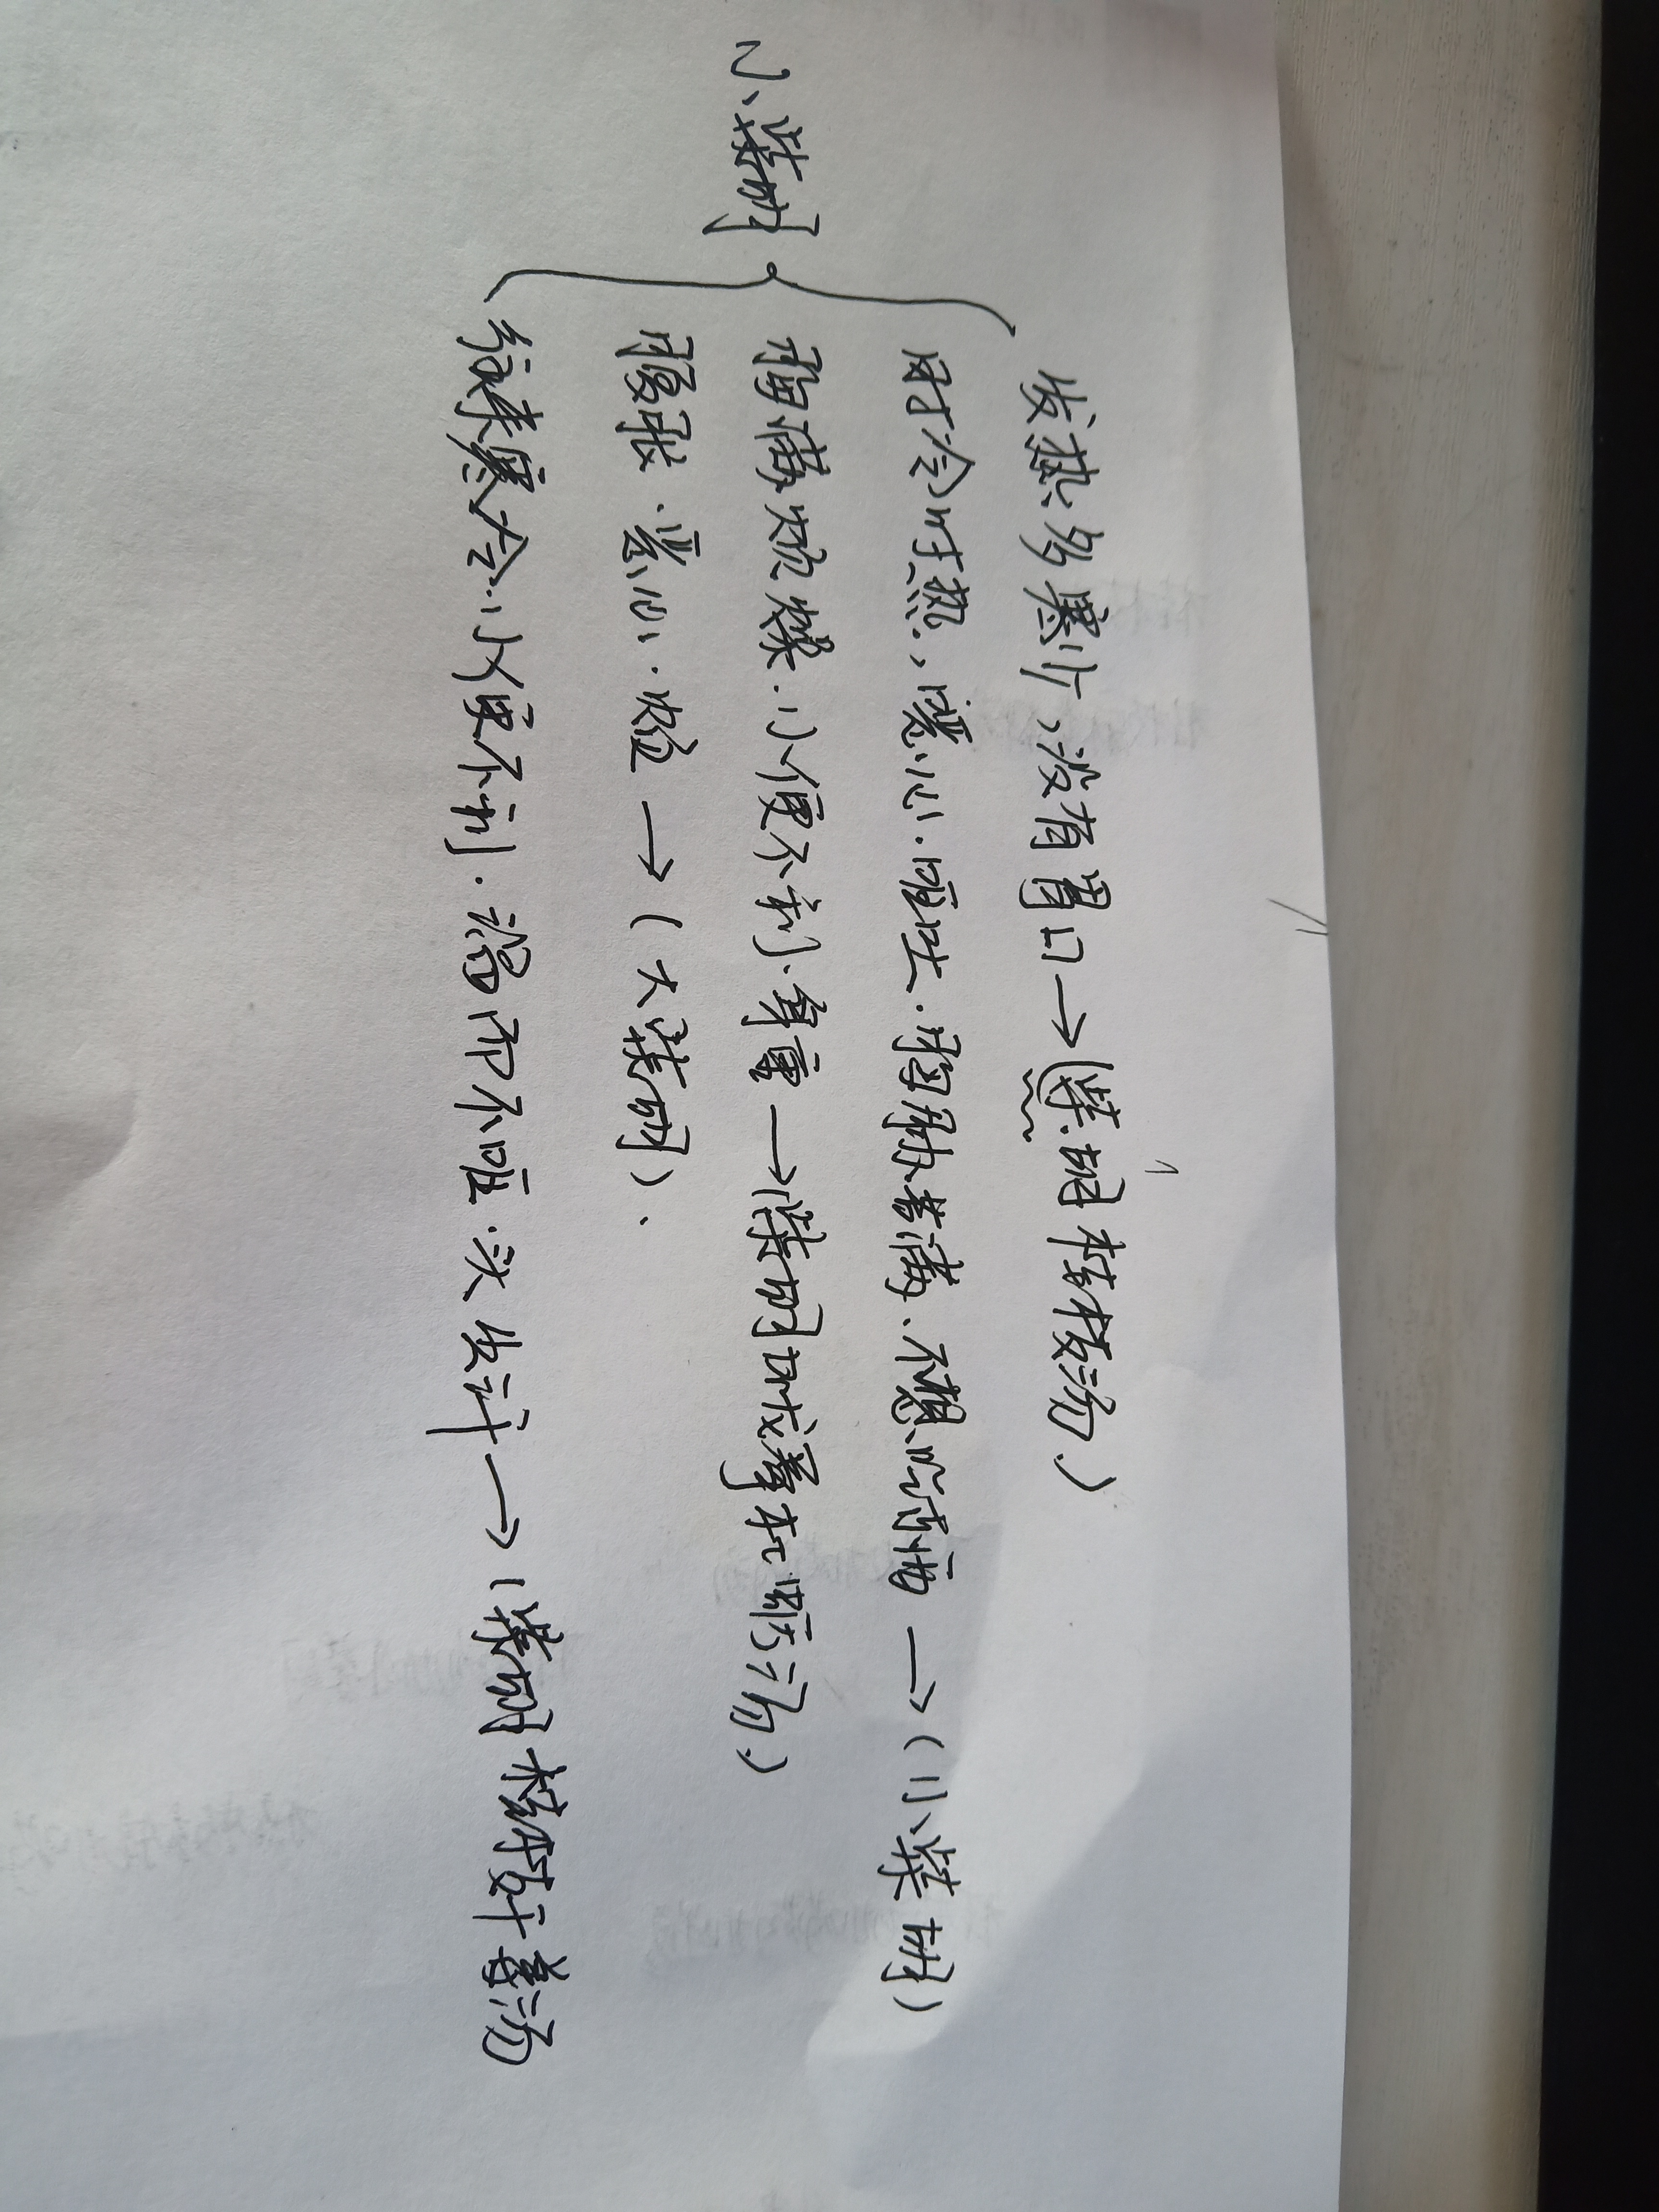 2、柴胡
发热多寒少，没有胃口→（柴胡桂枝汤）
时冷时热，恶心.呕吐.胸胁苦满、不想吃东西→（小柴胡）
胸满烦燥.小便不利.身重→（柴胡加龙骨牡蛎汤）
腹胀.恶心.→（大柴胡）、
往来寒冷.小便不利.渴而不呕.头出汗→（柴胡桂枝干姜汤